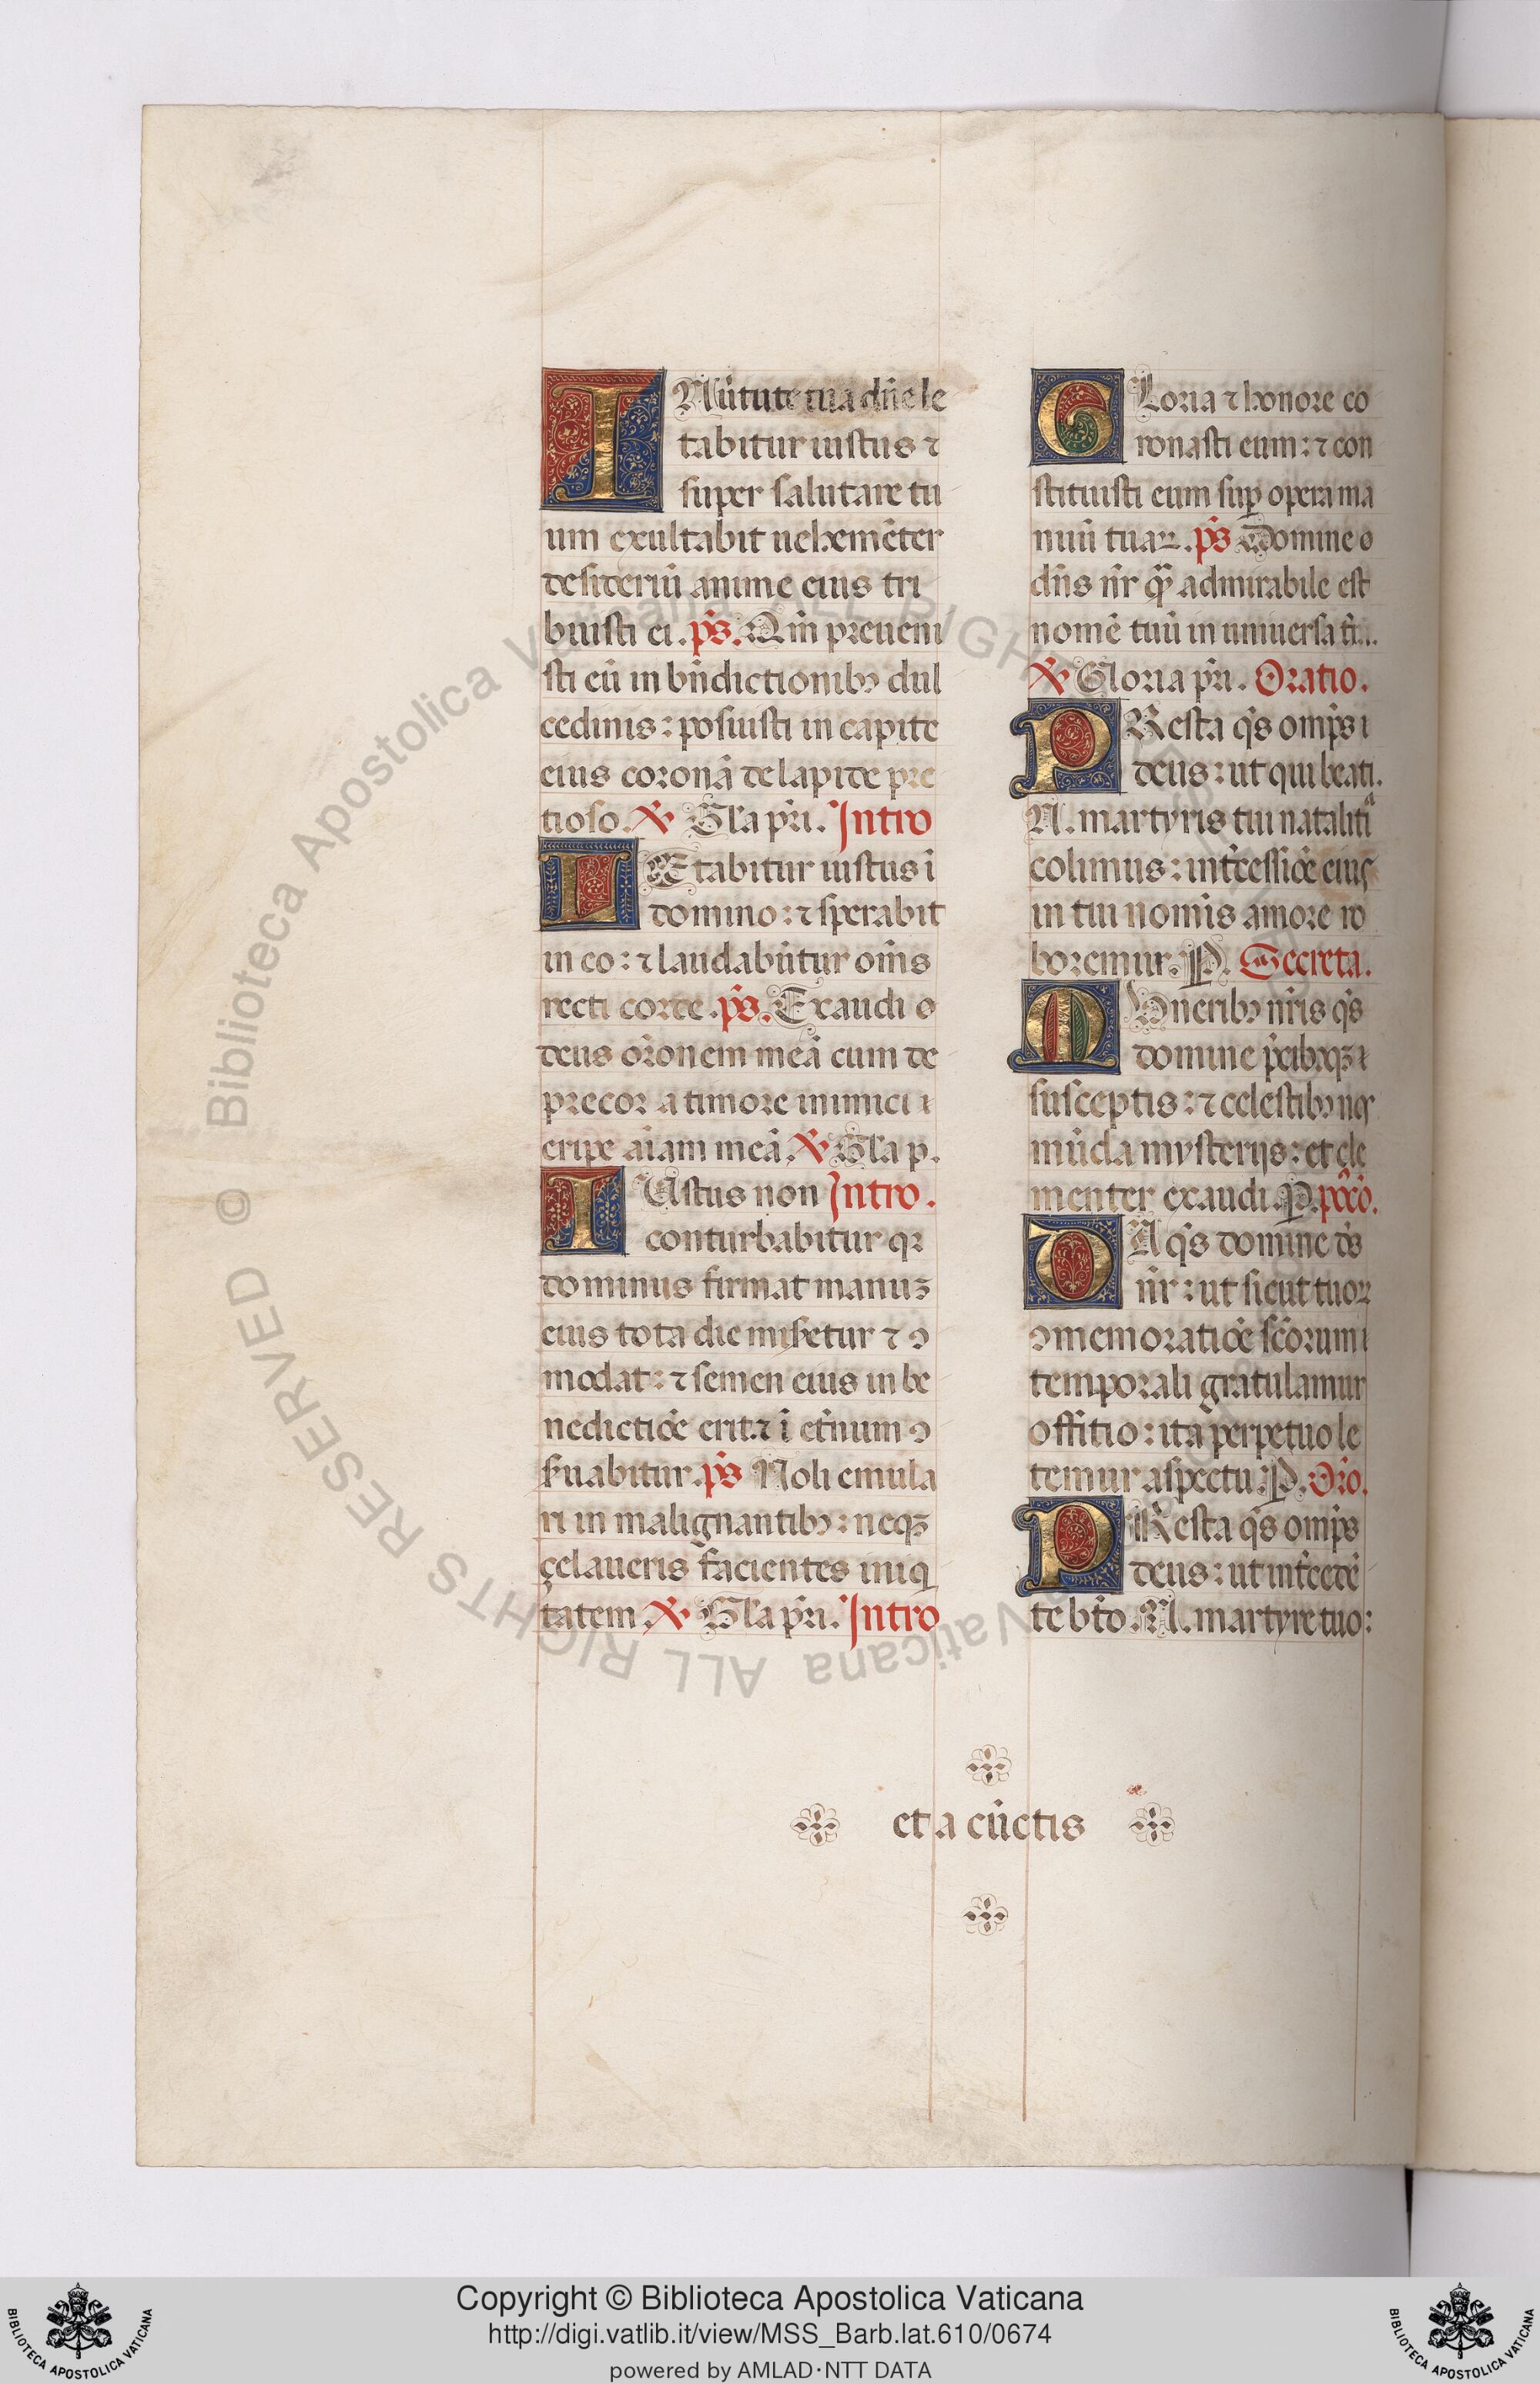 IN ũtute tua dñe le
tabitur iustus ⁊
super salutare tu
um exultabit uehemẽter
desideriũ anime eius tri
buisti ei. p̃s. Qm̃ preueni
sti eũ in bñdictionibꝯ dul
cedinis: posuisti in capite
eius coronã de lapide pre
tioso. ℣ Gl̃a pr̃i. Intro
LEtabitur iustus ĩ
domino: ⁊ sperabit
in eo: ⁊ laudabũtur om̃s
recti corde. p̃s. Exaudi o
deus or̃onem meã cum de
precor a timore inimici
eripe aĩam meã. ℣ Gl̃a p.
IUstus non Intro.
conturbabitur qꝛ
dominus firmat manuꝫ
eius tota die miẜetur ⁊ ꝯ
modat: ⁊ semen eius in be
nedictiõe erit: ⁊ ĩ et̃num ꝯ
ẜuabitur. p̃s Noli emula
ri in malignantibꝯ: neqꝫ
çelaueris facientes iniq
tatem. ℣ Gl̃a pr̃i. Intro
GLoria ⁊ honore co
ronasti eum: ⁊ con
stituisti eum suꝑ opera ma
nuũ tuaꝝ. p̃s Domine o
dñs nr̃ qͣ̃ admirabile est
nomẽ tuũ in uniuersa t̃r̃.
℣ Gloria pr̃i. Oratio.
PResta q̃s omp̃s
deus: ut qui beati
N. martyris tui natalitiᵃ
colimus: int̃cessiõe eius
in tui nomĩs amore ro
boremur. P. Secreta.
MUneribꝯ nr̃is q̃s
domine p̃cibꝯqꝫ
susceptis: ⁊ celestibꝯ nos
mũda mysterijs: et cle
menter exaudi. P. pꝯcõ.
DA q̃s domine ds̃
nr̃: ut sicut tuoꝝ
ꝯmemoratiõe sc̃orum
temporali gratulamur
offitio: ita perpetuo le
temur aspectu: P. Or̃o.
PResta q̃s omp̃s
deus: ut int̃cedẽ
te bt̃o. N. martyre tuo:
et a cũctis
© Biblioteca Apostolica Vaticana ALL RIGHTS RESERVED
Copyright © Biblioteca Apostolica Vaticana
http://digi.vatlib.it/view/MSS_Barb.lat.610/0674
powered by AMLAD·NTT DATA
BIBLIOTECA APOSTOLICA VATICANA
BIBLIOTECA APOSTOLICA VATICANA